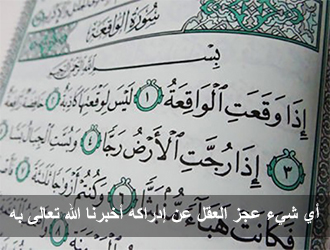 سُورَةُ الوَاقِعَة
بِسْمِ
إِذَا وَقَعَتِ ٱلْوَاقِعَةُ ١ لَيْسَ لِوَقْعَتِهَا كَاذِبَةٌ ٢ خَافِضَةٌ
إِذَا رُجَّتِ ٱلْأَرْضُ رَجًّا ٤ وَبُسَّتِ ٱلْجِبَالُ
فَكَانَتْ هَبَآءً وَكُنتُمْ أَزْوَٰجًا
أي شيء عجز العقل عن إدراكه أخبرنا الله تعالى به